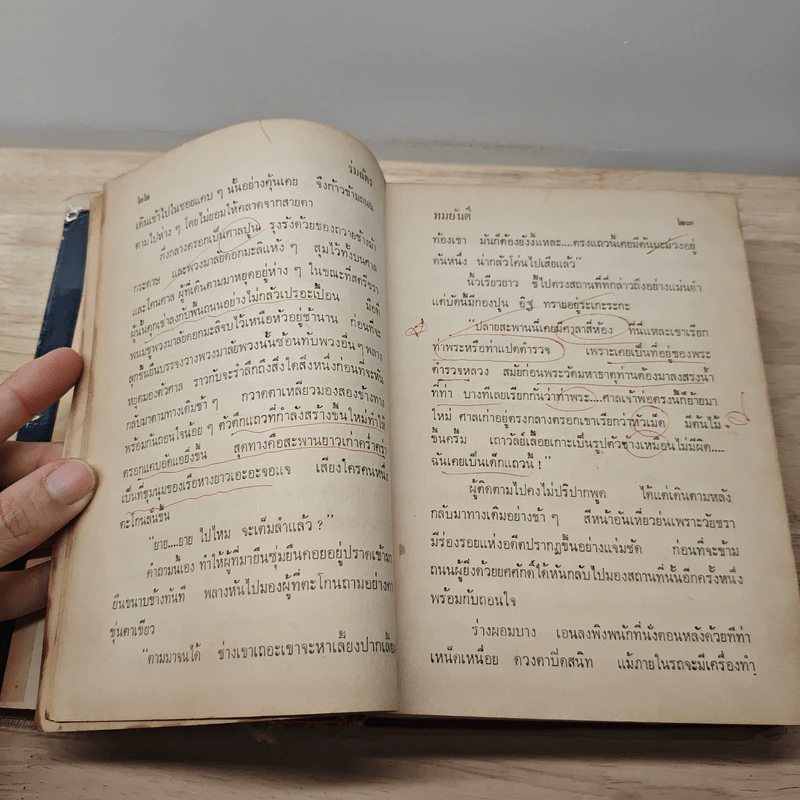 ๒๒
ร่มฉัตร
เดินเข้าไปในซอยแคบ ๆ นั้นอย่างคุ้นเคย จึงก้าวข้ามถนน
ตามไปห่าง ๆ โดยไม่ยอมให้คลาดจากสายตา
กึ่งกลางตรอกเป็นศาลปูน รุงรังด้วยของถวายช้างม้า
กระดาษ และพวงมาลัยดอกมะลิแห้ง ๆ สุมไว้ทั้งบนศาล
และโคนศาล ผู้ที่เดินตามมาหยุดอยู่ห่าง ๆ ในขณะที่สตรีชรา
ผู้นั้นคุกเข่าลงกับพื้นถนนอย่างไม่กลัวเปรอะเปื้อน มือที่
พนมชูพวงมาลัยดอกมะลิจบไว้เหนือหัวอยู่ช้านาน ก่อนที่จะ
ลุกขึ้นยืนบรรจงวางพวงมาลัยพวงนั้นซ้อนทับพวงอื่น ๆ พลาง
หยุดมองตัวศาล ราวกับจะรำลึกถึงสิ่งใดสิ่งหนึ่งก่อนที่จะหัน
กลับมาตามทางเดิมช้า ๆ กวาดตาเหลียวมองสองข้างทาง
พร้อมกับถอนใจน้อย ๆ ตัวตึกแถวที่กำลังสร้างขึ้นใหม่ทำให้
ตรอกแคบอัดแอยิ่งขึ้น สุดทางคือสะพานยาวเก่าคร่ำคร่า
เป็นที่ชุมนุมของเรือหางยาวเอะอะจอแจ เสียงใครคนหนึ่ง
ตะโกนลั่นขึ้น
"ยาย....ยาย ไปไหม จะเต็มลำแล้ว ?"
คำถามนั้นเอง ทำให้ผู้ที่มายืนซุ่มยืนคอยอยู่ปราดเข้ามา
ยืนขนาบข้างทันที พลางหันไปมองผู้ที่ตะโกนถามอย่างตา
ขุ่นตาเขียว
"ตามมาจนได้ ช่างเขาเถอะเขาจะหาเลี้ยงปากเลี้ยง
ทมยันตี
๒๓
ท้องเขา มันก็ต้องยังงี้แหละ....ตรงแถวนี้เคยมีต้นมะม่วงอยู่
ต้นหนึ่ง น่ากลัวโค่นไปเสียแล้ว"
นิ้วเรียวยาว ชี้ไปตรงสถานที่ที่กล่าวถึงอย่างแม่นยำ
แต่บัดนี้มีกองปูน อิฐ ทรายอยู่ระเกะระกะ
"ปลายสะพานนี่เคยมีศาลาสี่ห้อง ที่นี่แหละเขาเรียก
ท่าพระหรือท่าแปดตำรวจ เพราะเคยเป็นที่อยู่ของพระ
ตำรวจหลวง สมัยก่อนพระวัดมหาธาตุท่านต้องมาลงสรงน้ำ
ที่ท่า บางทีเลยเรียกกันว่าท่าพระ....ศาลเจ้าพ่อตรงนี้ก็ย้ายมา
ใหม่ ศาลเก่าอยู่ตรงกลางตรอกเขาเรียกว่าหัวเม็ด มีต้นไม้
ขึ้นครึ้ม เถาวัลย์เลื้อยเกาะเป็นรูปตัวช้างเหมือนไม่มีผิด....
ฉันเคยเป็นเด็กแถวนี้ !"
ผู้ติดตามไปคงไม่ปริปากพูด ได้แต่เดินตามหลัง
กลับมาทางเดิมอย่างช้า ๆ สีหน้าอันเหี่ยวย่นเพราะวัยชรา
มีร่องรอยแห่งอดีตปรากฏขึ้นอย่างแจ่มชัด ก่อนที่จะข้าม
ถนนผู้ยิ่งด้วยยศศักดิ์ได้หันกลับไปมองสถานที่นั้นอีกครั้งหนึ่ง
พร้อมกับถอนใจ
ร่างผอมบาง เอนลงพิงพนักที่นั่งตอนหลังด้วยทีท่า
เหน็ดเหนื่อย ดวงตาปิดสนิท แม้ภายในรถจะมีเครื่องทำ